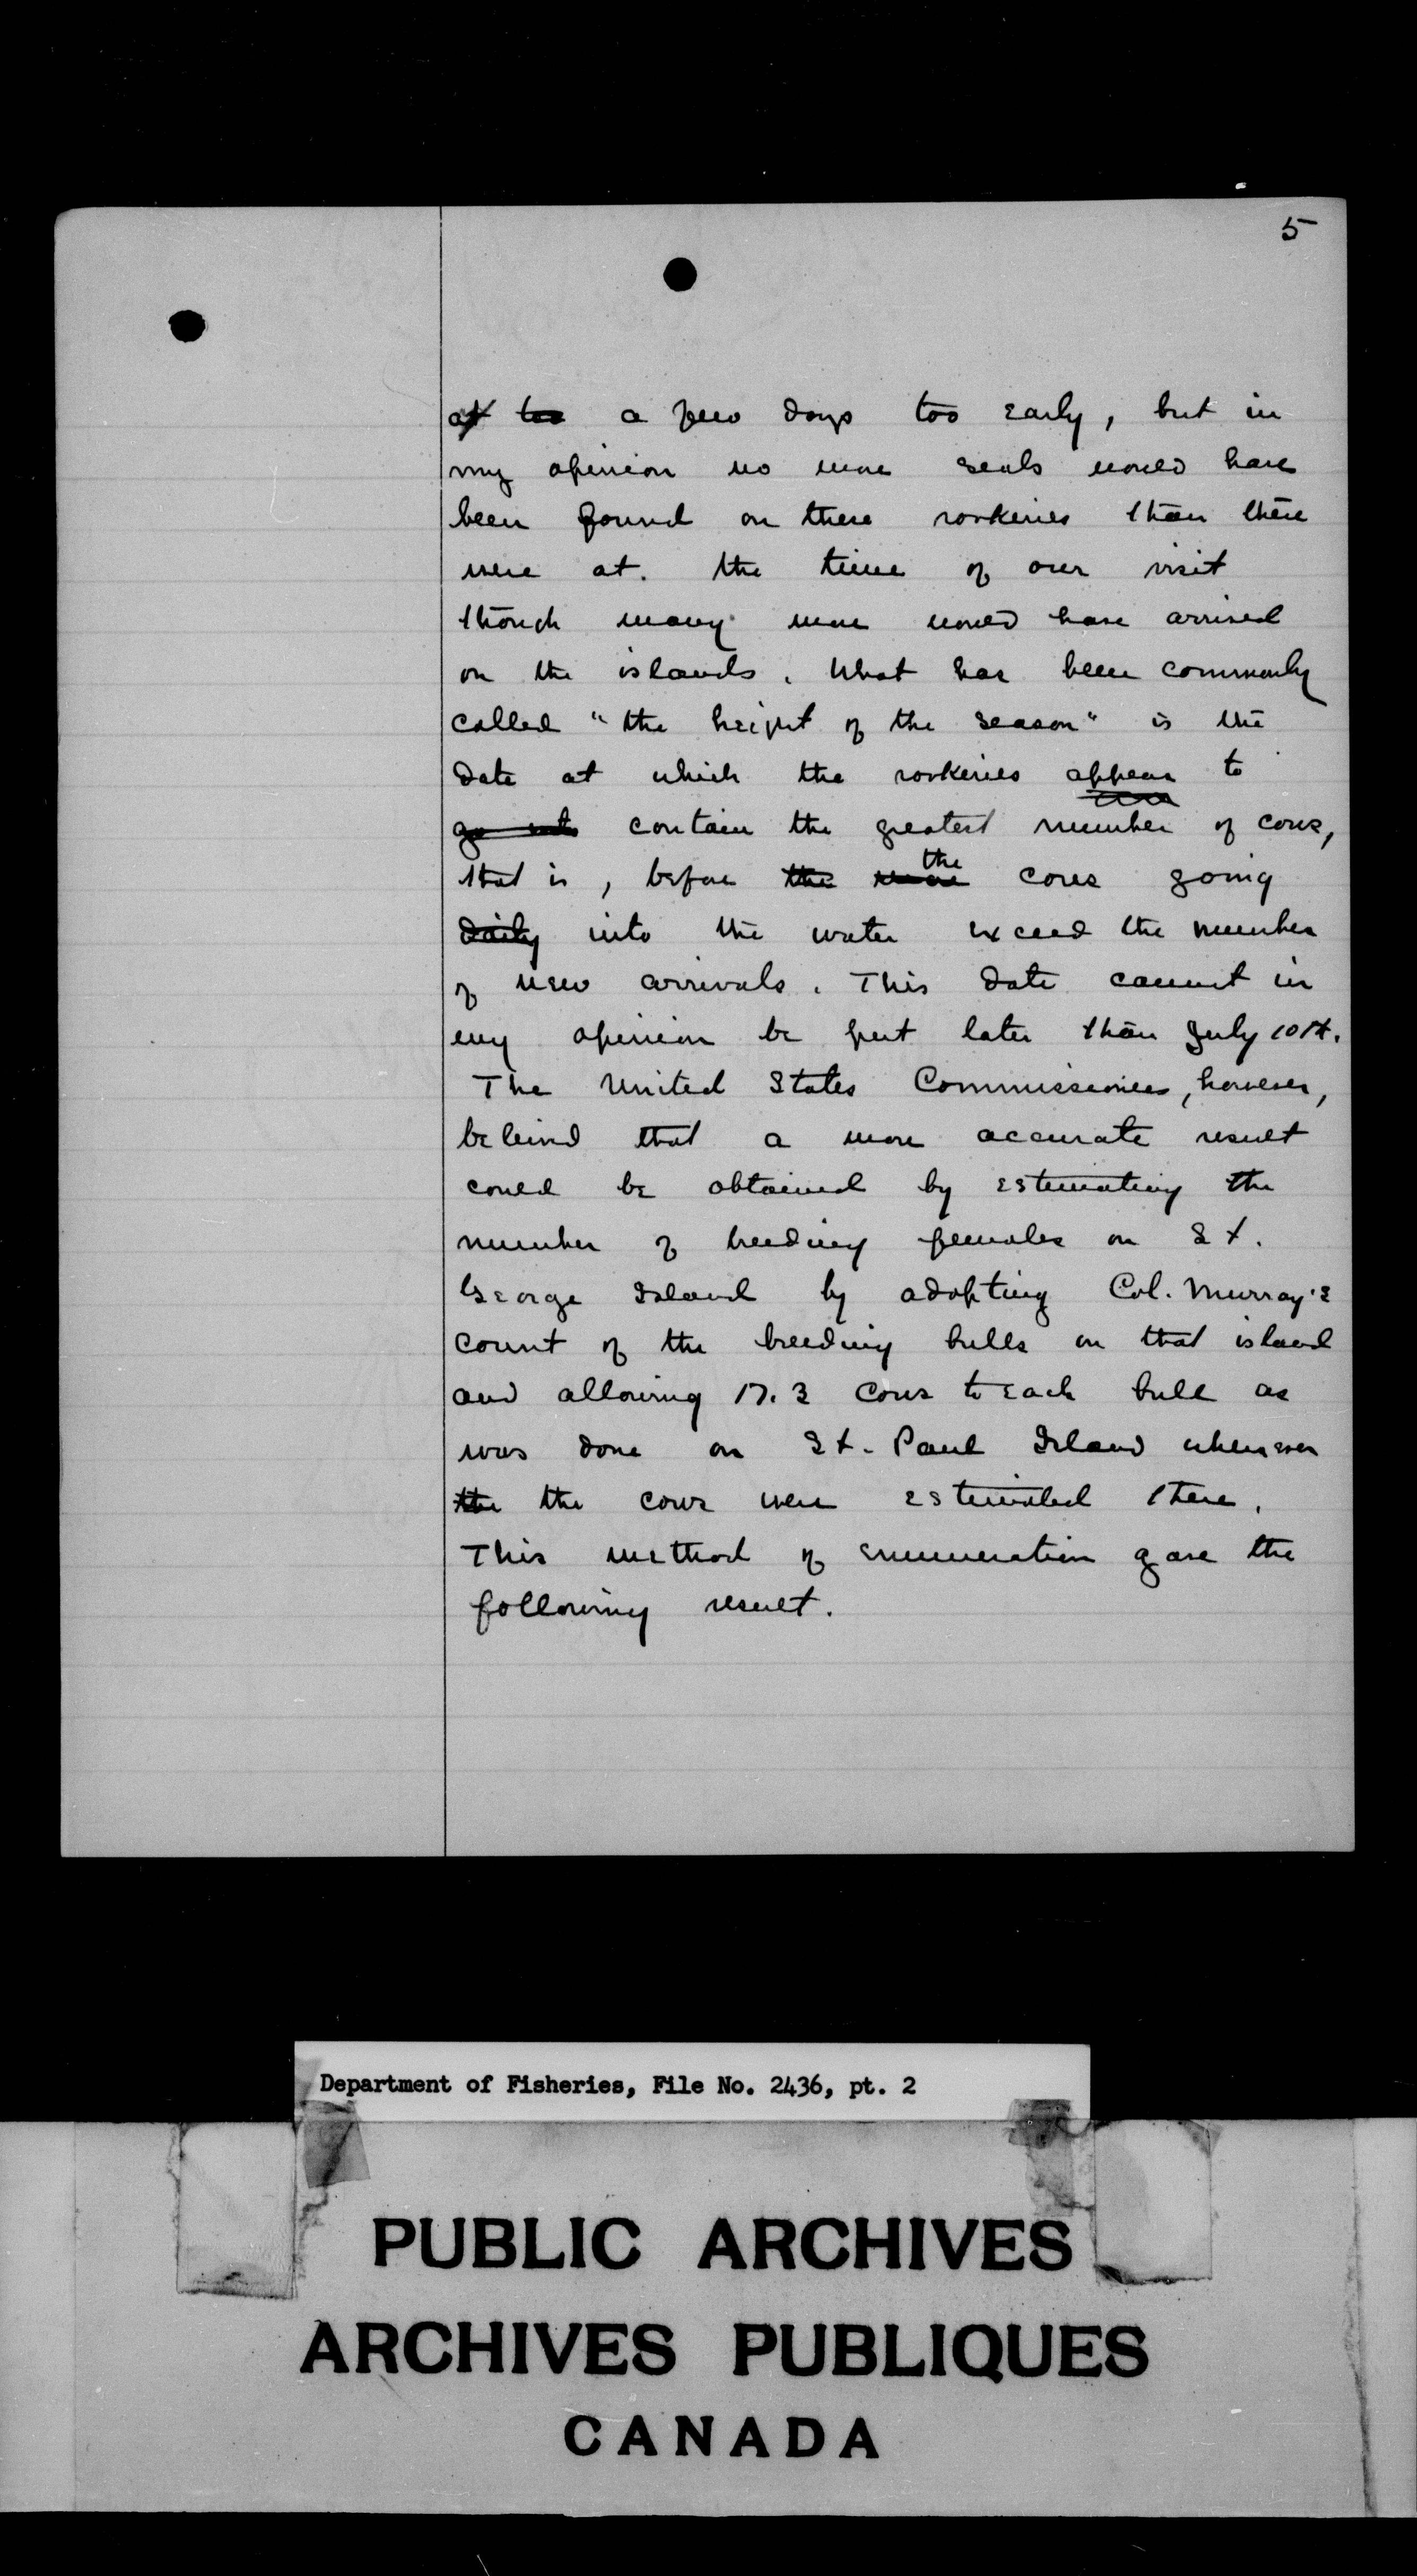 5
at too a few days too early, but in
my opinion no more seals would have
been found on these rookeries than there
were at. the time of our visit
though many more would have arrived
on the islands. What has been commonly
called "the height of the season" is the
date at which the rookeries appear to
go into contain the greatest number of cows,
that is, before the more the cows going
daily into the water exceed the number
of new arrivals. This date cannot in
my opinion be put later than July 10th.
The United States Commissioners, however,
believed that a more accurate result
could be obtained by estimating the
number of breeding females on St.
George Island by adopting Col. Murray's
count of the breeding bulls on that island
and allowing 17.3 cows to each bull as
was done on St. Paul Island whenever
the the cows were estimated there.
This method of enumeration gave the
following result.
Department of Fisheries, File No. 2436, pt. 2
PUBLIC ARCHIVES
ARCHIVES PUBLIQUES
CANADA